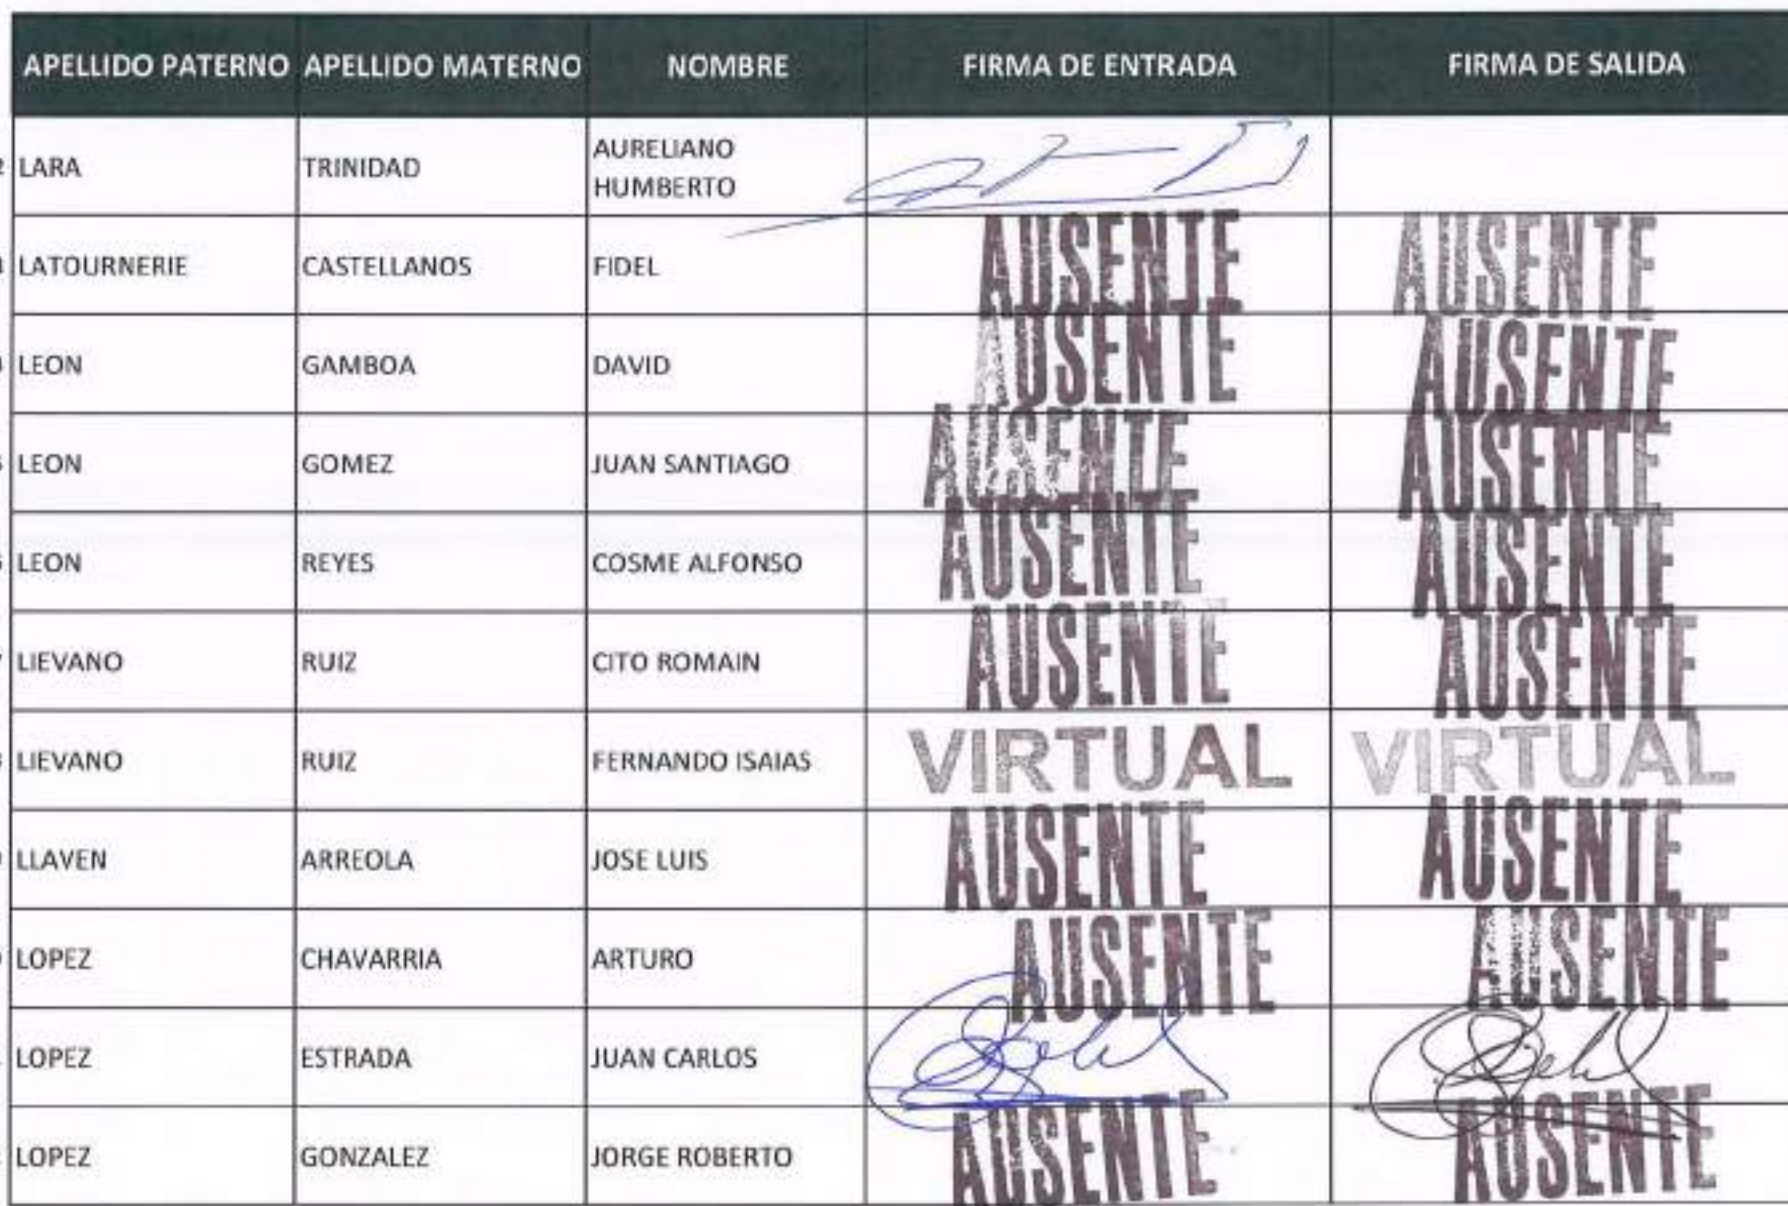 APELLIDO PATERNO APELLIDO MATERNO NOMBRE FIRMA DE ENTRADA FIRMA DE SALIDA
LARA TRINIDAD AURELIANO
HUMBERTO
LATOURNERIE CASTELLANOS FIDEL AUSENTE AUSENTE
LEON GAMBOA DAVID AUSENTE AUSENTE
LEON GOMEZ JUAN SANTIAGO AUSENTE AUSENTE
LEON REYES COSME ALFONSO AUSENTE AUSENTE
LIEVANO RUIZ CITO ROMAIN AUSENTE AUSENTE
LIEVANO RUIZ FERNANDO ISAIAS VIRTUAL VIRTUAL
LLAVEN ARREOLA JOSE LUIS AUSENTE AUSENTE
LOPEZ CHAVARRIA ARTURO AUSENTE AUSENTE
LOPEZ ESTRADA JUAN CARLOS
LOPEZ GONZALEZ JORGE ROBERTO AUSENTE AUSENTE